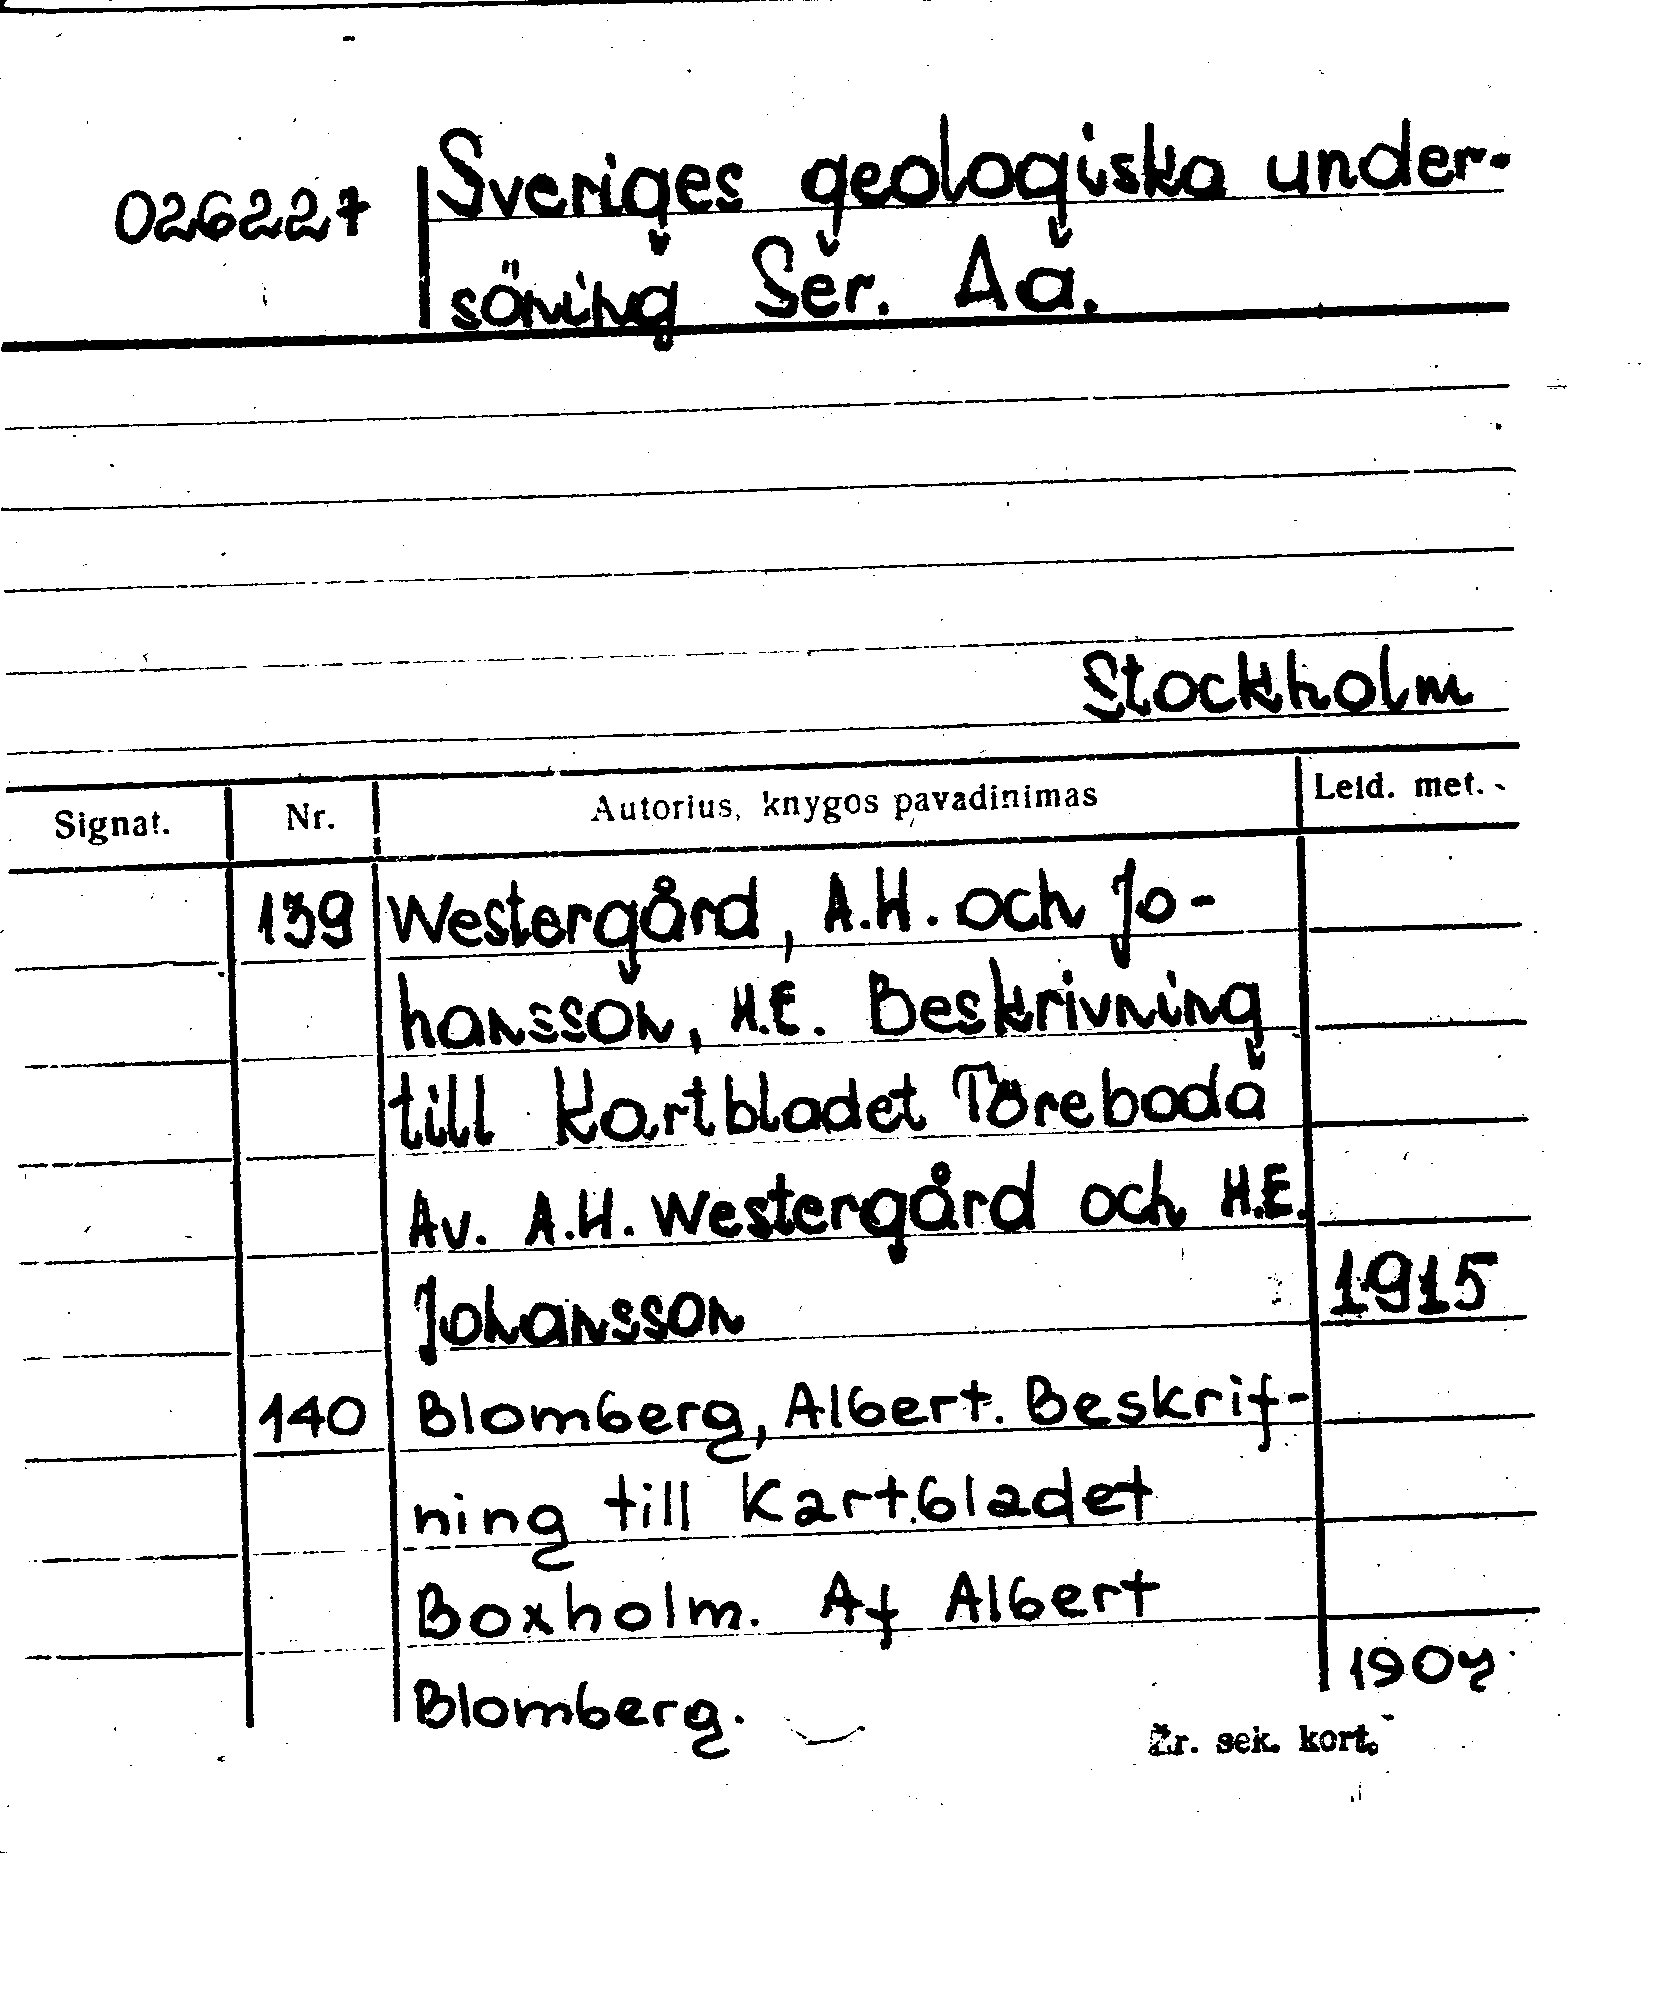 026227 Sveriges geologiska under-
söning Ser. Aa.
Stockholm
Signat. Nr. Autorius, knygos pavadinimas Leid. met.
139 Westergård, A.H. och Jo-
hansson, H.E. Beskrivning
till Kartbladet Töreboda
Av. A.H. Westergård och H.E.
Johansson 1915
140 Blomberg, Albert. Beskrif-
ning till Kartbladet
Boxholm. Af Albert
Blomberg. 1907
Žr. sek. kort.